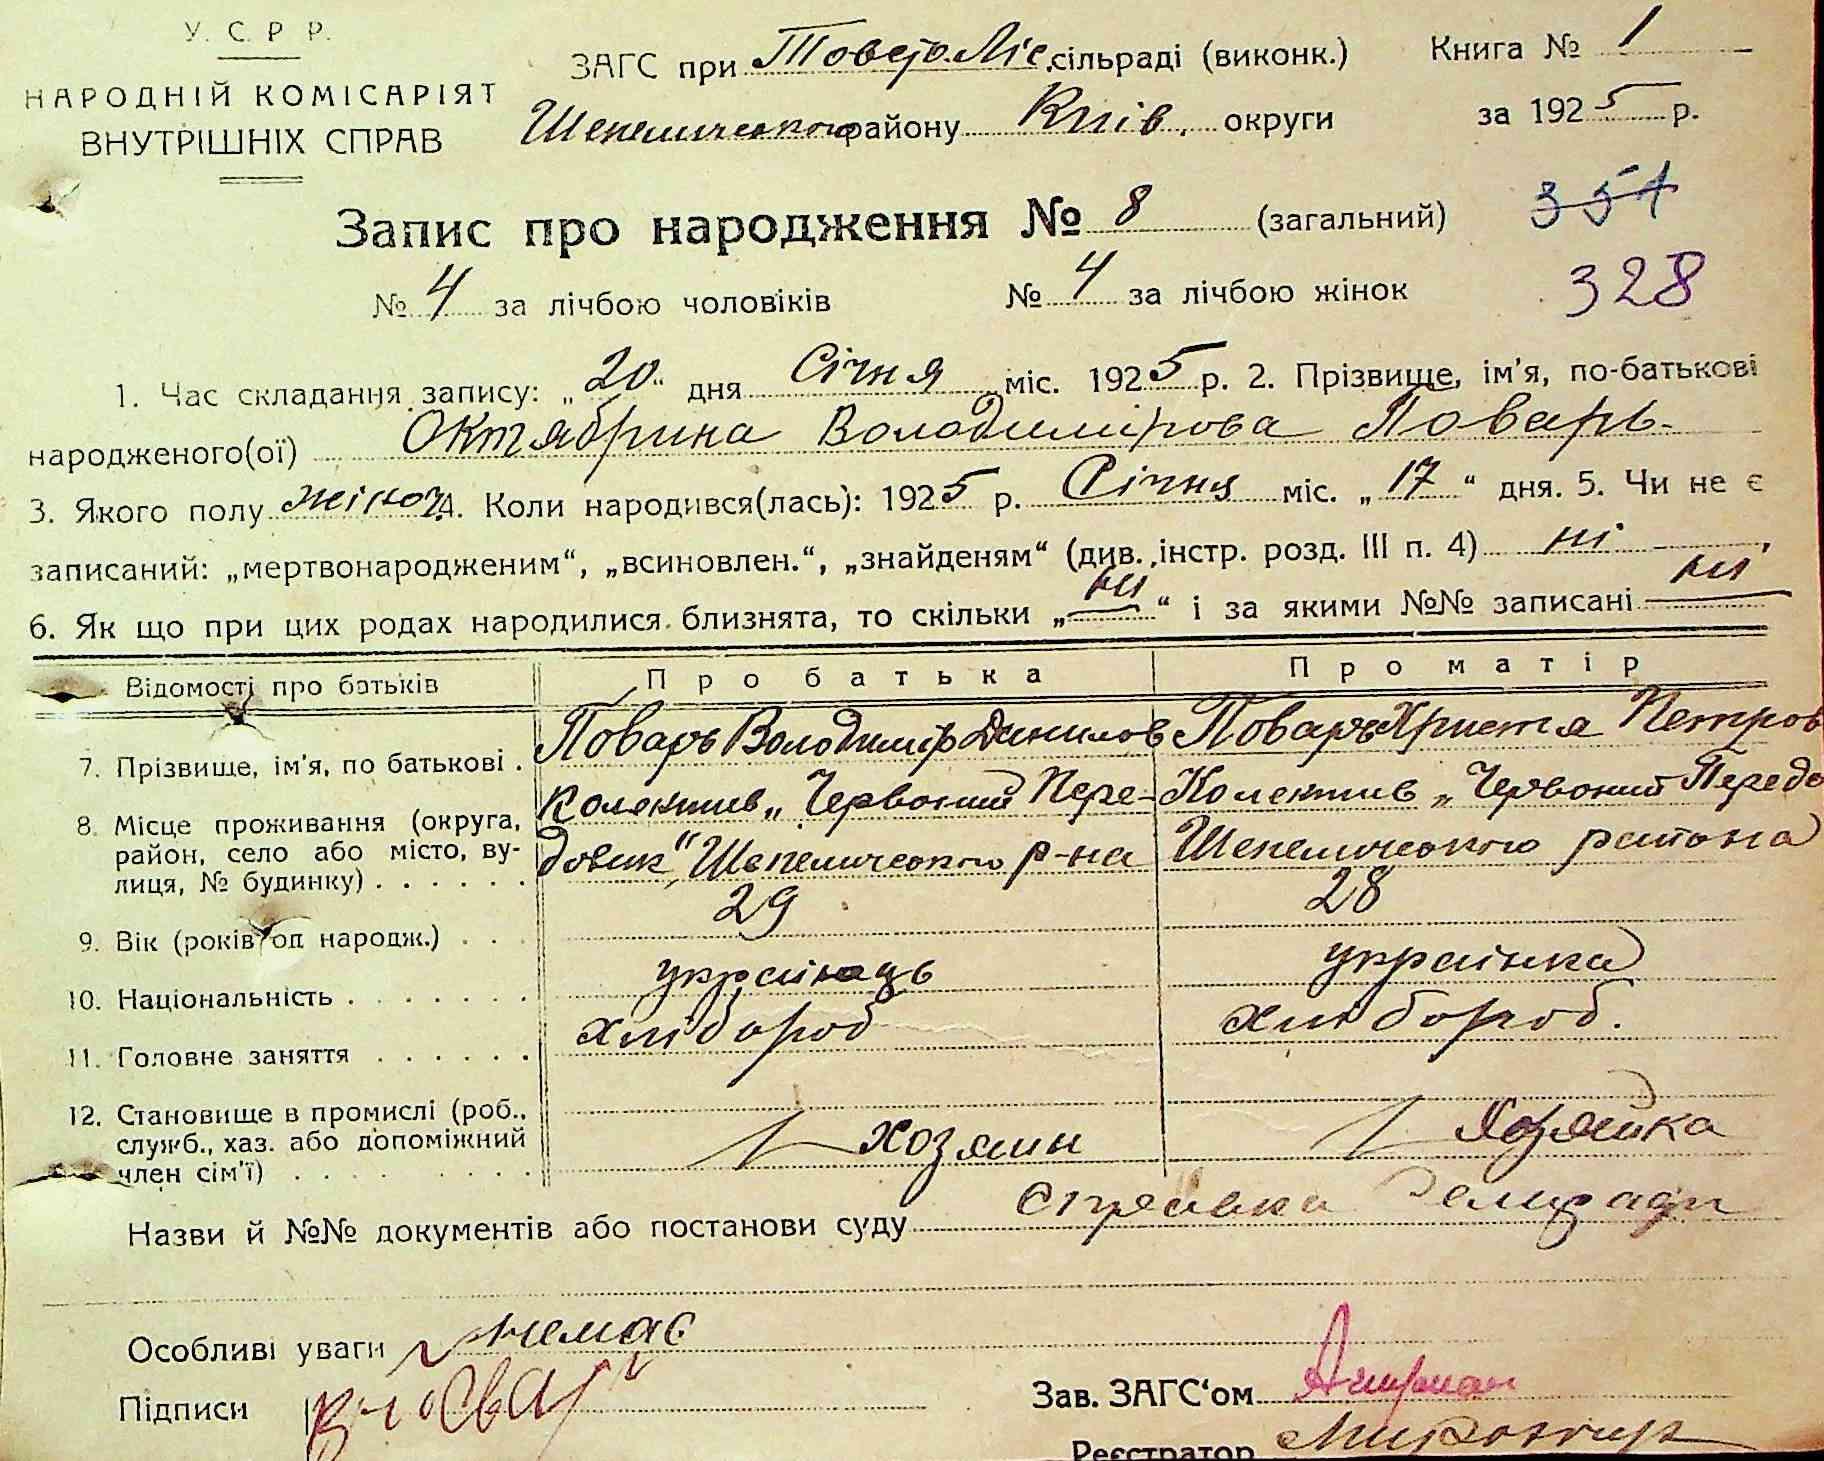 У. С. Р. Р.
НАРОДНІЙ КОМІСАРІЯТ
ВНУТРІШНІХ СПРАВ
ЗАГС при Товсто.Ліс. сільраді (виконк.)
Шепелического району Київ. округи
Книга № 1
за 1925 р.
Запис про народження № 8 (загальний)
354
№ 4 за лічбою чоловіків № 4 за лічбою жінок
328
1. Час складання запису: „20“ дня Січня міс. 1925 р. 2. Прізвище, ім'я, по-батькові
народженого(ої) Октябрина Володимірова Поварь
3. Якого полу жіноч. 4. Коли народився(лась): 1925 р. Січня міс. „17“ дня. 5. Чи не є
записаний: „мертвонародженим“, „всиновлен.“, „знайденям“ (див. інстр. розд. III п. 4) ні
6. Як що при цих родах народилися близнята, то скільки „ни“ і за якими №№ записані ни
Відомості про батьків Про батька Про матір
7. Прізвище, ім'я, по батькові . Поварь Володимір Данилов Поварь Христя Петров
8. Місце проживання (округа, район, село або місто, вулиця, № будинку) . . . . . .
Колектив „Червоний Пере-
довик“ Шепелического р-на
Колектив „Червоний Передо
Шепелического района
9. Вік (років од народж.) . . . 29 28
10. Національність . . . . . . . українець українка
11. Головне заняття . . . . . . хлібороб хлібороб.
12. Становище в промислі (роб.,
служб., хаз. або допоміжний
член сім'ї) . . . . . . . . хозяин хозяйка
Назви й №№ документів або постанови суду справка
Особливі уваги немає
Підписи
Зав. ЗАГС'ом
Реєстратор